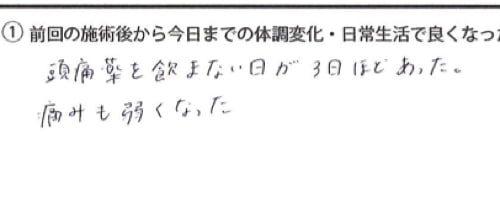 ① 前回の施術後から今日までの体調変化・日常生活で良くなった
頭痛薬を飲まない日が3日ほどあった。
痛みも弱くなった